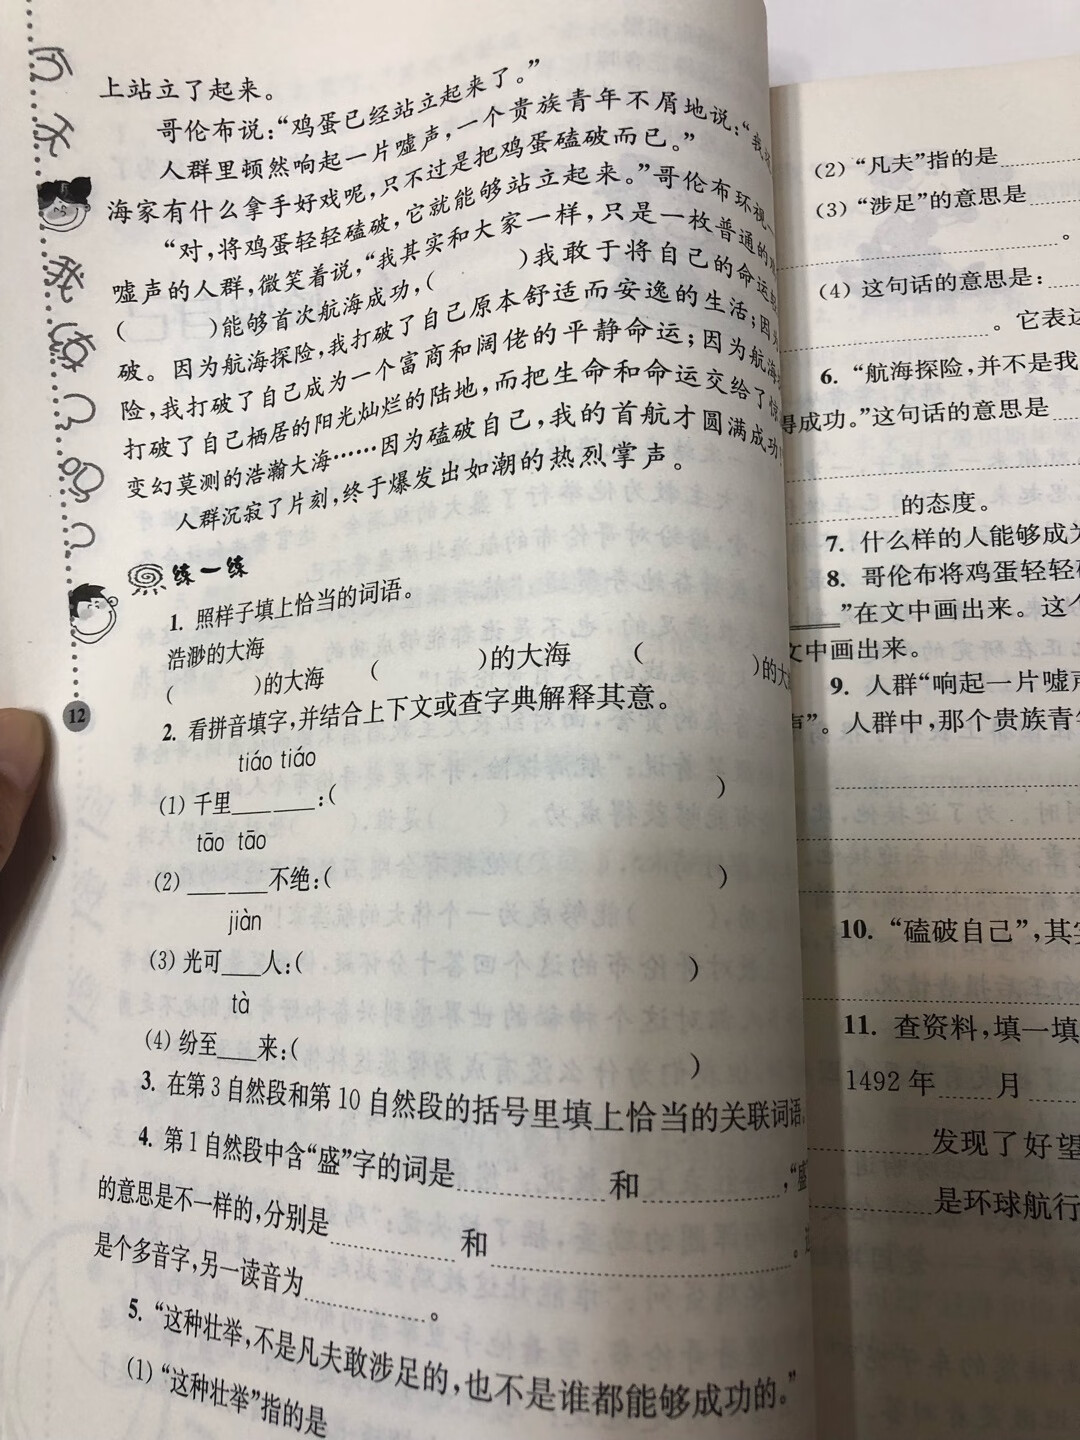 上站立了起来。
哥伦布说：“鸡蛋已经站立起来了。”
人群里顿然响起一片嘘声，一个贵族青年不屑地说：“我
海家有什么拿手好戏呢，只不过是把鸡蛋磕破而已。”
“对，将鸡蛋轻轻磕破，它就能够站立起来。”哥伦布环视
嘘声的人群，微笑着说，“我其实和大家一样，只是一枚普通的
(　　)能够首次航海成功，(　　)我敢于将自己的命运
破。因为航海探险，我打破了自己原本舒适而安逸的生活；因为
险，我打破了自己成为一个富商和阔佬的平静命运；因为航海
打破了自己栖居的阳光灿烂的陆地，而把生命和命运交给了
变幻莫测的浩瀚大海……因为磕破自己，我的首航才圆满成功
人群沉寂了片刻，终于爆发出如潮的热烈掌声。
练一练
1. 照样子填上恰当的词语。
浩渺的大海
(　　)的大海　(　　)的大海　(　　)的大海
2. 看拼音填字，并结合上下文或查字典解释其意。
tiáo tiáo
(1) 千里______：(　　)
tāo tāo
(2) ______不绝：(　　)
jiàn
(3) 光可___人：(　　)
tà
(4) 纷至___来：(　　)
3. 在第3自然段和第10自然段的括号里填上恰当的关联词语。
4. 第1自然段中含“盛”字的词是______和______，“盛
的意思是不一样的，分别是______和______。
是个多音字，另一读音为______。
5. “这种壮举，不是凡夫敢涉足的，也不是谁都能够成功的。”
(1) “这种壮举”指的是
12
(2) “凡夫”指的是
(3) “涉足”的意思是
。
(4) 这句话的意思是：
。它表达
6. “航海探险，并不是我
得成功。”这句话的意思是
的态度。
7. 什么样的人能够成为
8. 哥伦布将鸡蛋轻轻
”在文中画出来。这个
文中画出来。
9. 人群“响起一片嘘声
声”。人群中，那个贵族青
10. “磕破自己”，其实
11. 查资料，填一填
1492年______月
发现了好望
是环球航行